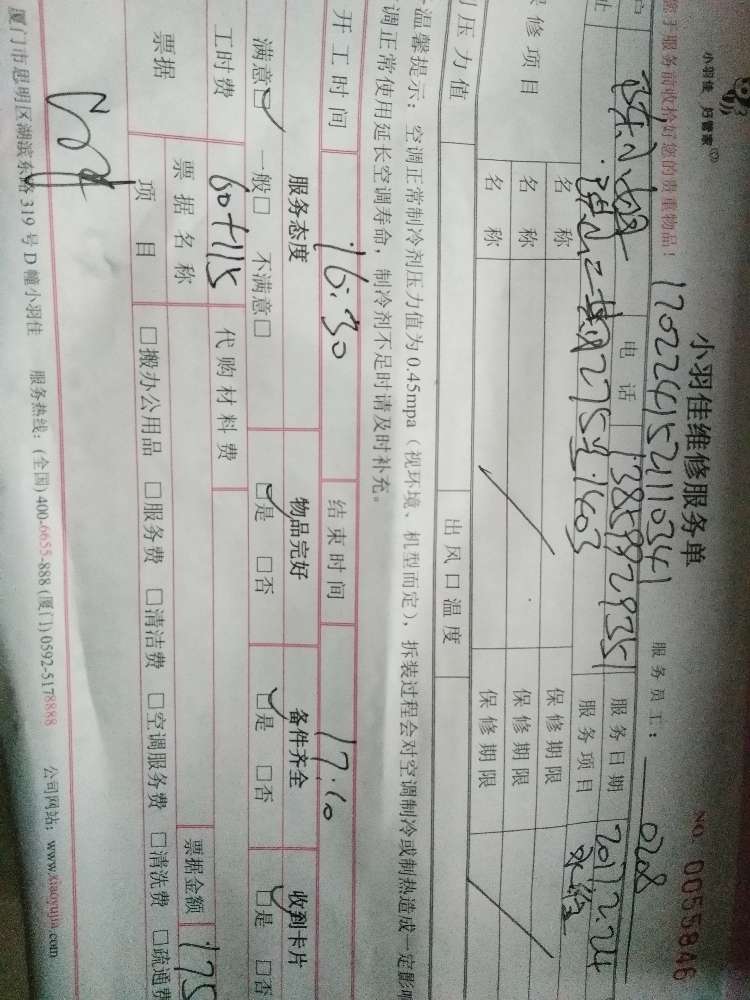 小羽佳 好管家
您于服务前收拾好您的贵重物品！
小羽佳维修服务单
NO. 0055846
服务员工： 0208
户 电话 服务日期 2017.2.24
址 服务项目
修项目 名称 保修期限
名称 保修期限
名称 保修期限
压力值 出风口温度
温馨提示：空调正常制冷剂压力值为0.45mpa（视环境、机型而定），拆装过程会对空调制冷或制热造成一定影响
调正常使用延长空调寿命，制冷剂不足时请及时补充。
开工时间 16:30 结束时间 17:10
服务态度 物品完好 备件齐全 收到卡片
满意☑ 一般□ 不满意□ ☑是 □否 ☑是 □否 ☑是 □否
工时费 60+115 代购材料费
票据 票据名称 票据金额 175
项目 □搬办公用品 □服务费 □清洁费 □空调服务费 □清洗费 □疏通费
厦门市思明区湖滨东路319号D幢小羽佳 服务热线：(全国)400-6655-888 (厦门)0592-5178888 公司网站：www.xiaoyujia.com